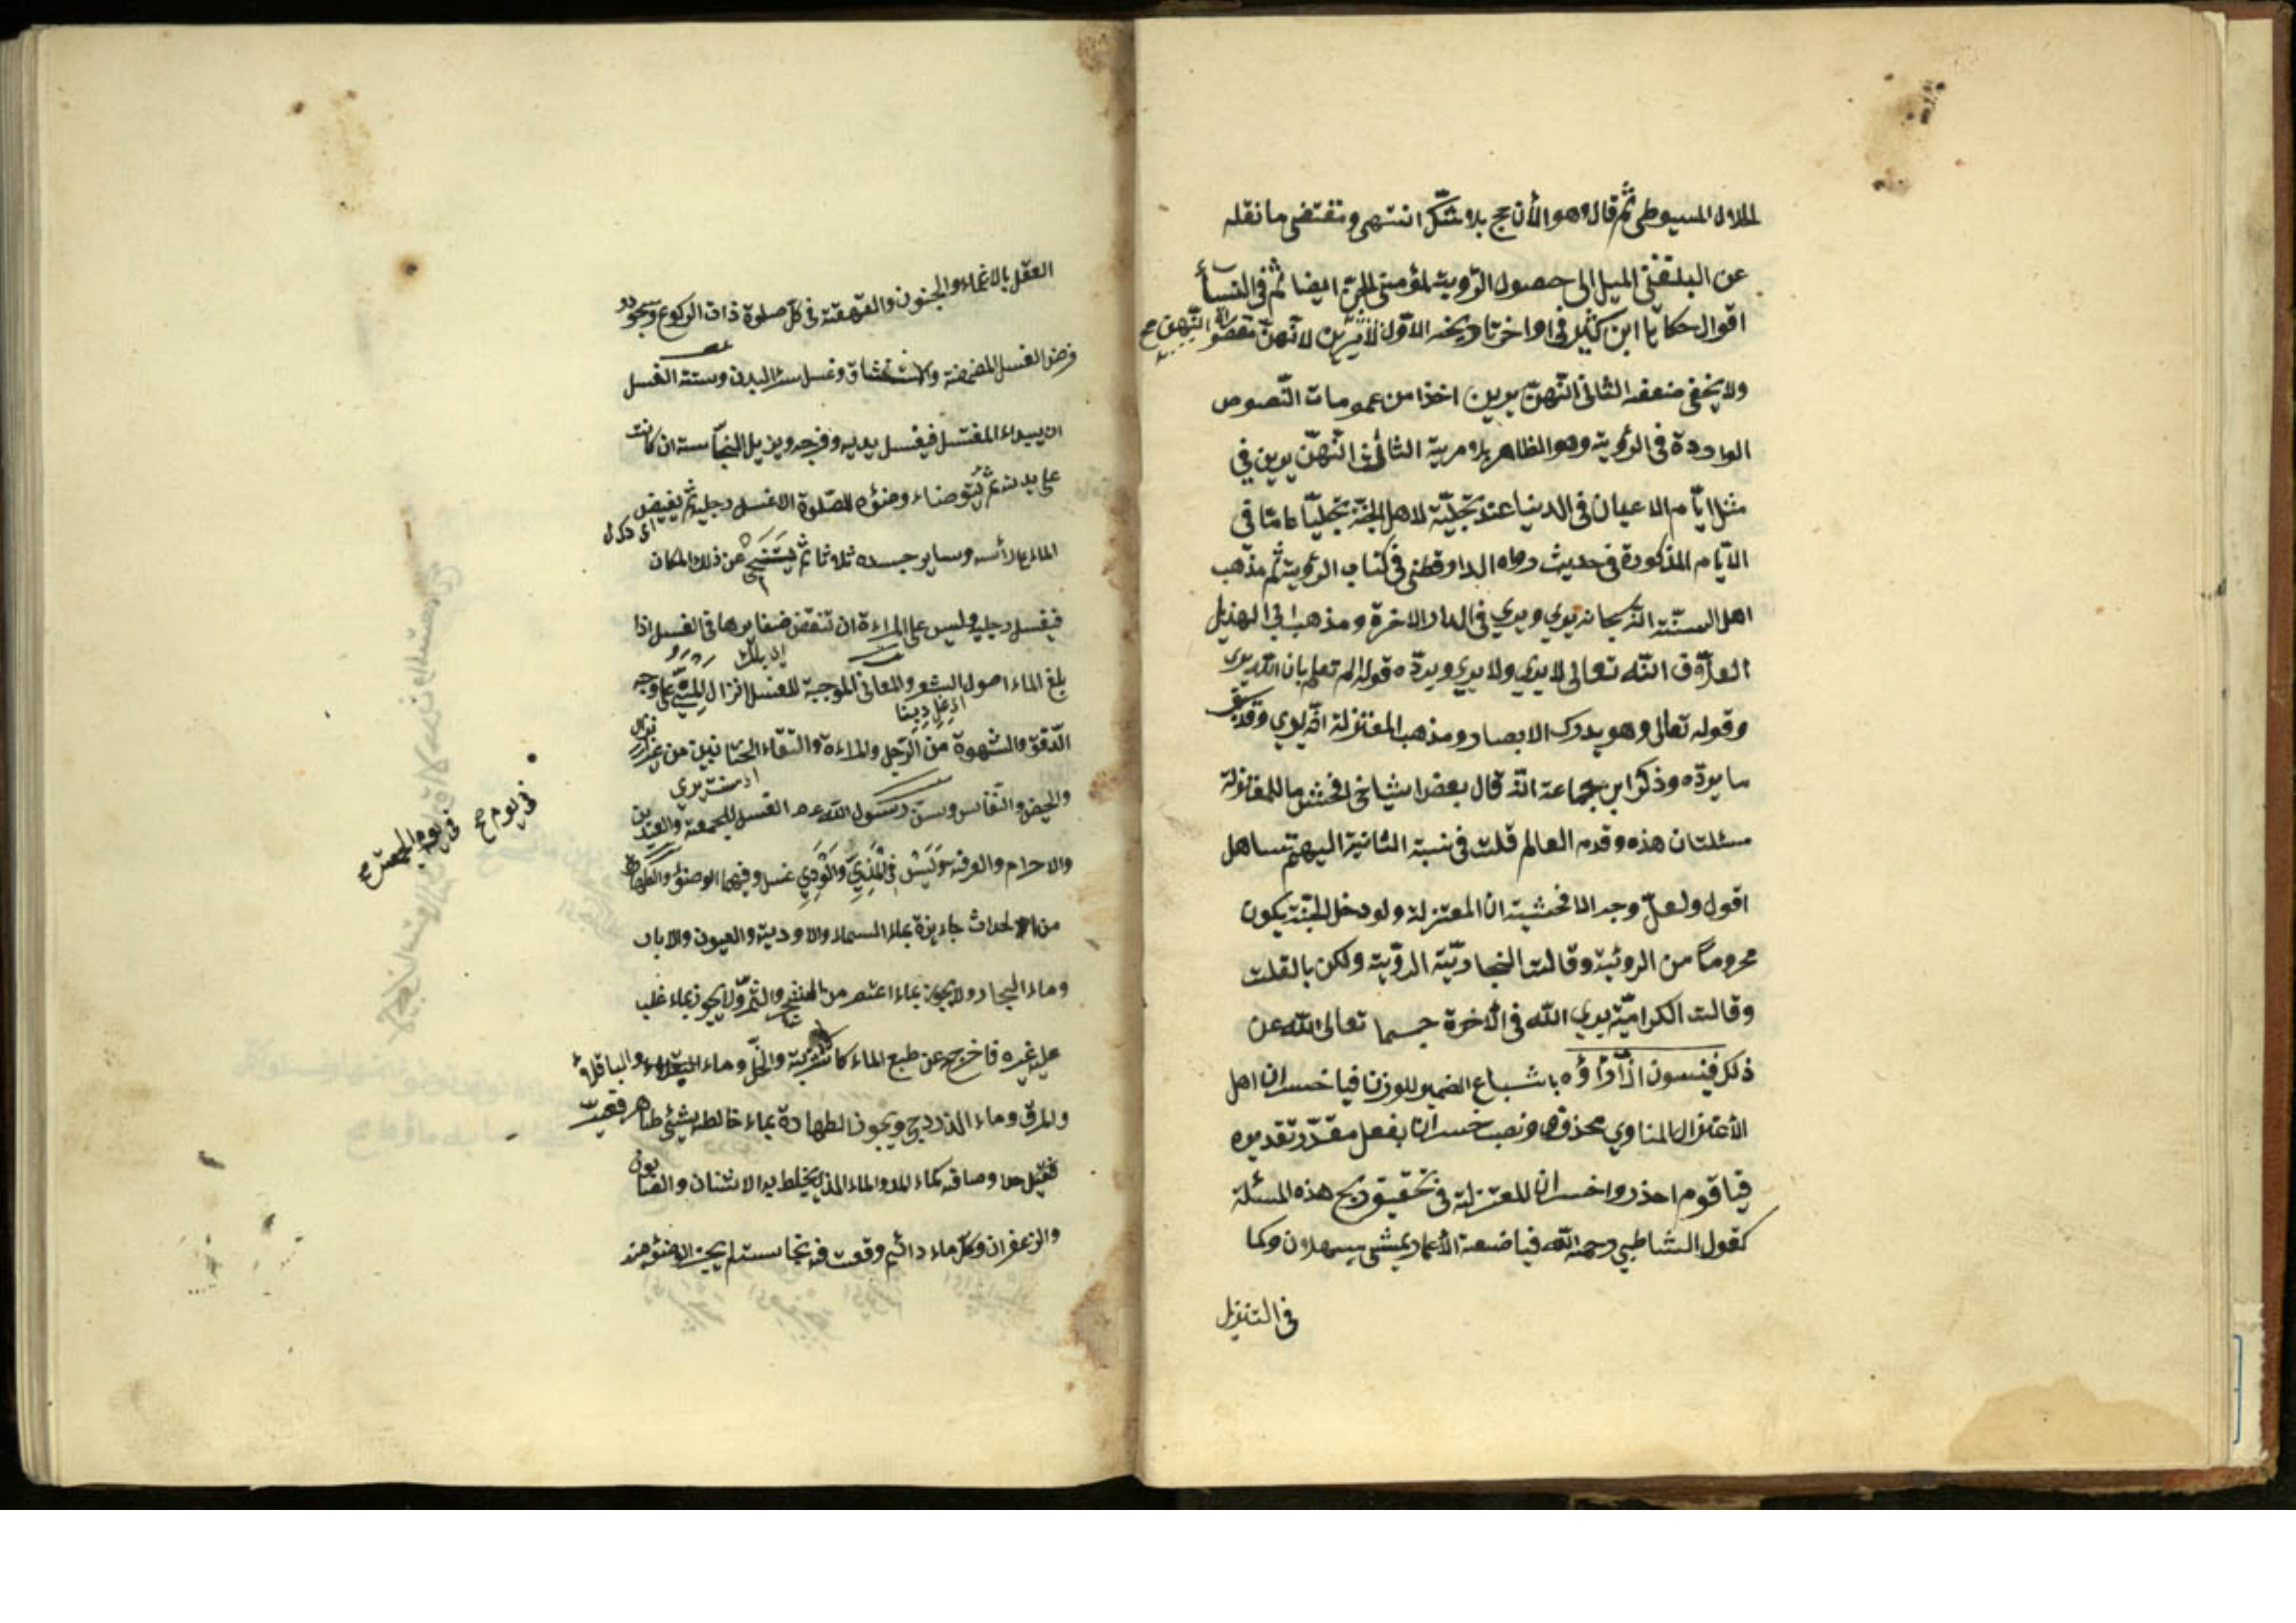 الجلال السيوطي ثم قال وهو الأرجح بلا شك انتهى ومقتضى ما نقله
عن البلقيني الميل الى حصول الرؤية لمؤمني الجن ايضا ثم في النساء
اقوال حكاها ابن كثير في اواخر تاريخه الاول لا يرين لانهن مقصورات
ولا يخفى ضعفه الثاني انهن يرين اخذا من عمومات النصوص
الواردة في الرؤية وهو الظاهر بلا مرية الثالث انهن يرين في
مثل ايام الاعياد في الدنيا عند تجليه لاهل الجنة تجليا عاما في
الايام المذكورة في حديث رواه الدارقطني في كتاب الرؤية ثم مذهب
اهل السنة انه سبحانه يرى ويرى في الدار الاخرة ومذهب ابي الهذيل
العلاف ان الله تعالى لا يرى ولا يرى ويرده قوله الم تعلم بان الله يرى
وقوله تعالى وهو يدرك الابصار ومذهب المعتزلة انه يرى وقد سبق
ما يرده وذكر ابن جماعة انه قال بعض اشياخي افحش ما للمعتزلة
مسئلتان هذه وقدم العالم قلت في نسبة الثانية اليهم تساهل
اقول ولعل وجه الافحشية ان المعتزلة ولو دخل الجنة يكون
محروما من الرؤية وقالت النجارية الرؤية ولكن بالقلب
وقالت الكرامية يرى الله في الآخرة جسما تعالى الله عن
ذلك فينسون اذا رأؤه باشباع الضمير للوزن فيا خسران اهل
الأعتزال المناوي محذوف ونصب خسران بفعل مقدر تقديره
فيا قوم احذروا خسران للمعتزلة في تحقيق ربح هذه المسئلة
كقول الشاطبي رحمه الله فيا ضيعة الأعمار تمشي سبهللا وكما
في التنزيل
العقل بالاغماء والجنون والقهقهة في كل صلوة ذات الركوع وسجود
فرض الغسل المضمضة والاستنشاق وغسل سائر البدن وسنة الغسل
ان يبداء المغتسل فيغسل يديه وفرجه ويزيل النجاسة ان كانت
على بدنه ثم يتوضاء وضؤه للصلوة الا غسل رجليه ثم يفيض
الماء على رأسه وساير جسده ثلاثا ثم يتنحى عن ذلك المكان
فيغسل رجليه وليس على المراءة ان تنقض ضفايرها في الغسل اذا
بلغ الماء اصول الشعر والمعاني الموجبة للغسل انزال المني على وجه
الدفق والشهوة من الرجل والمراءة والتقاء الختانين من غير انزال
والحيض والنفاس وسن رسول الله عم الغسل للجمعة والعيدين
في يوم صح
في يوم الجمعة صح
والاحرام والعرفة وليس في المذي والودي غسل وفيهما الوضؤ والطهارة
من الاحداث جايزة بماء السماء والاودية والعيون والابار
وماء البحار ولا يجوز بماء اعتصر من الشجر والثمر ولا يجوز بماء غلب
عليه غيره فاخرجه عن طبع الماء كالاشربة والخل وماء الباقلاء
والمرق وماء الزردج ويجوز الطهارة بماء خالطه شيئ طاهر فغيرت
فغير احد اوصافه كماء المد والماء الذي يختلط به الاشنان والصابون
والزعفران وكل ماء دائم وقعت فيه نجاسة لم يجز الوضؤ منه